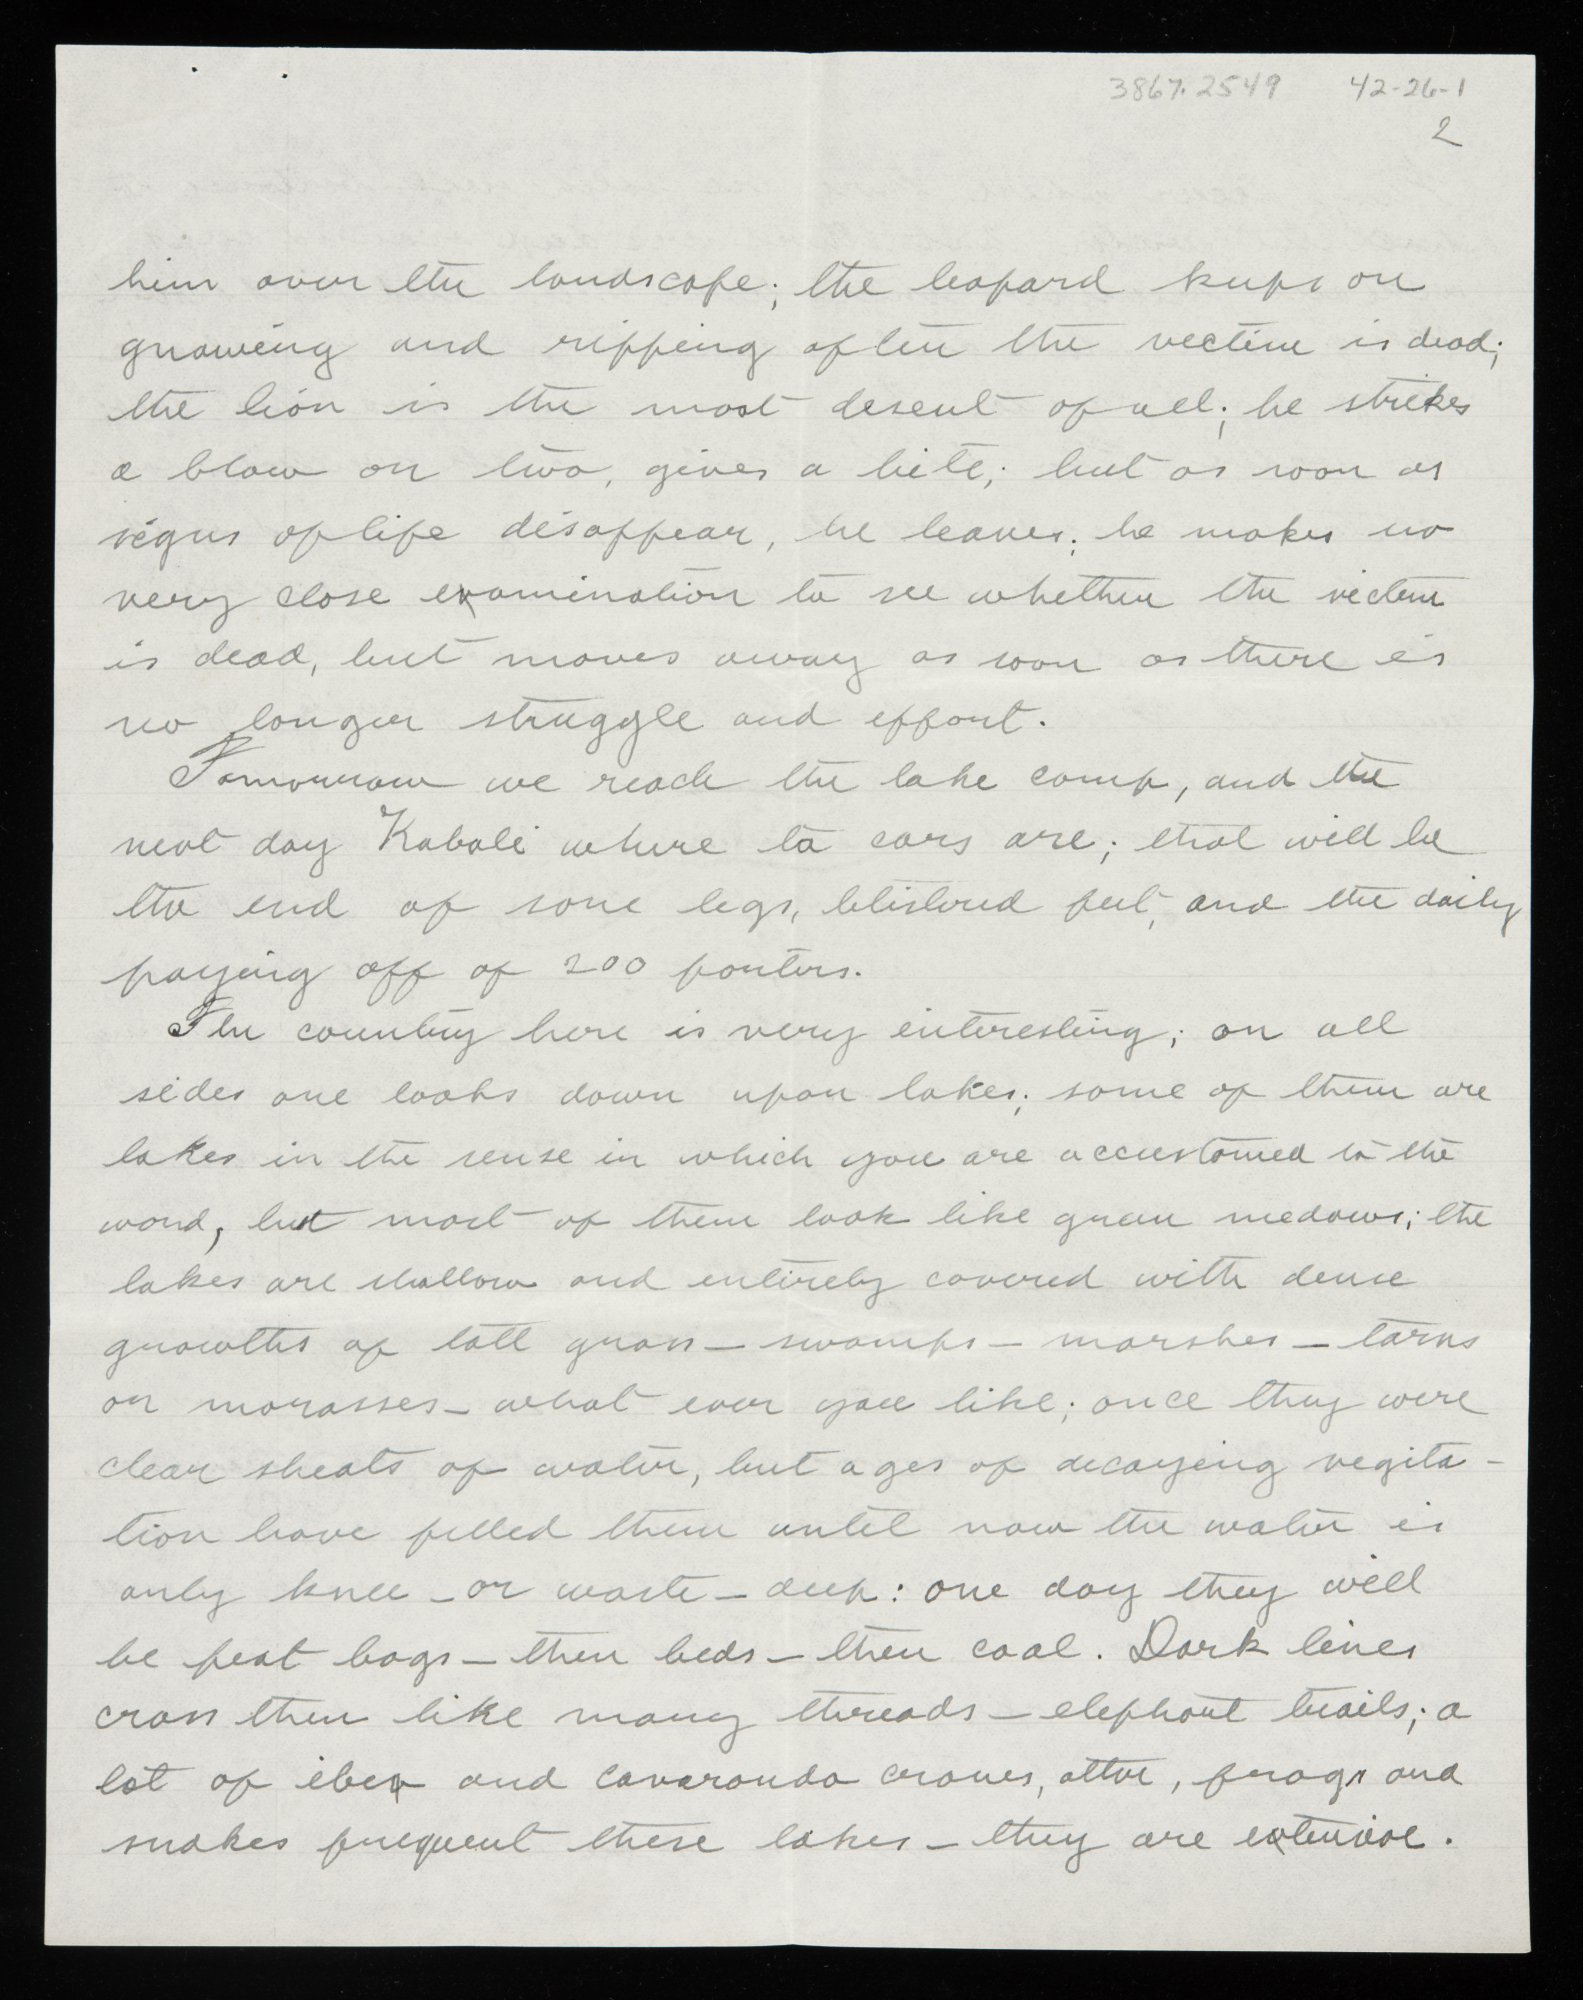 3867.2549 42-26-1
2
him over the landscape; the leopard keeps on
gnawing and ripping after the vectim is dead;
the lion is the most desent of all; he strikes
a blow or two, gives a bite; but as soon as
signs of life disappear, he leaves; he makes no
very close examination to see whether the victem
is dead, but moves away as soon as there is
no longer struggle and effort.
Tomorrow we reach the lake camp, and the
next day Kabale where to cars are; that will be
the end of sore legs, blistered feet, and the daily
paying off of 200 porters.
The country here is very interesting; on all
sides one looks down upon lakes; some of them are
lakes in the sense in which you are accustomed to the
word, but most of them look like green medows; the
lakes are shallow and entirely covered with dense
growths of tall grass - swamps - marshes - tarns
or morasses - what ever you like; once they were
clear sheats of water, but ages of decaying vegita-
tion have filled them until now the water is
only knee - or waste - deep: one day they will
be peat bogs - then beds - then coal. Dark lines
cross them like many threads - elephant trails; a
lot of ibex and cavaronda cranes, otter, frogs and
snakes frequent these lakes - they are extensive.